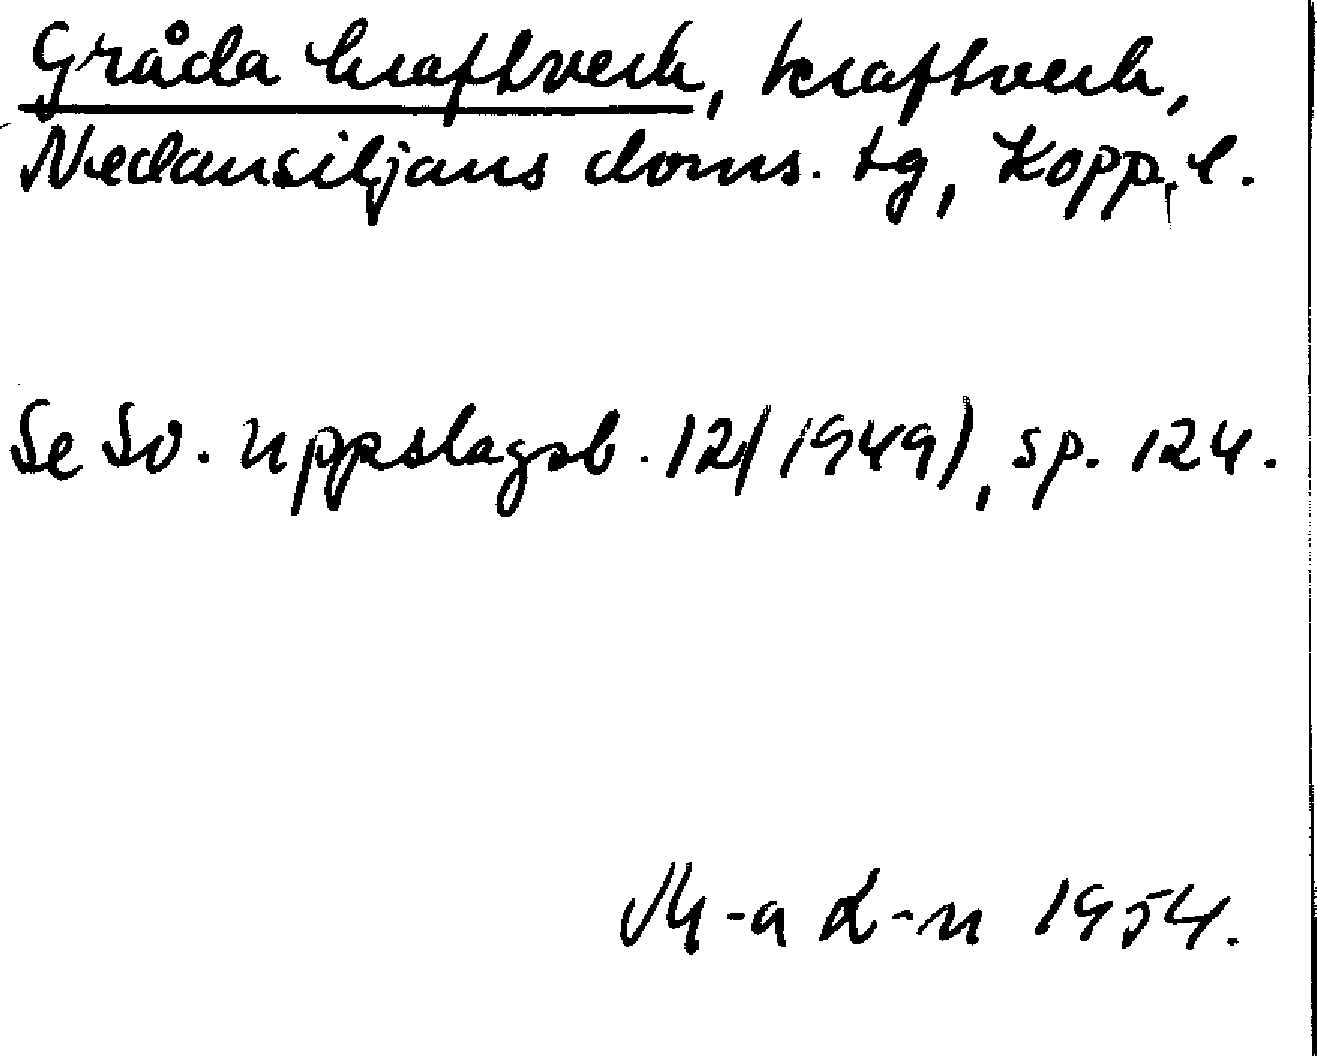 Gråda kraftverk, kraftverk,
Nedansiljans doms. tg, Kopp. l.
Se Sv. uppslagsb. 12 (1949), sp. 124.
M-a L-n 1954.